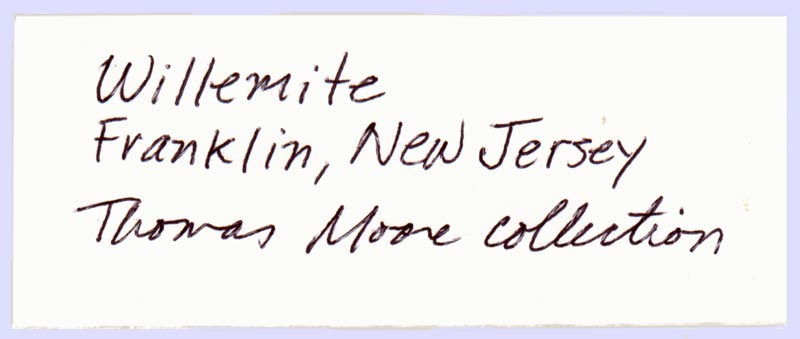 Willemite
Franklin, New Jersey
Thomas Moore collection